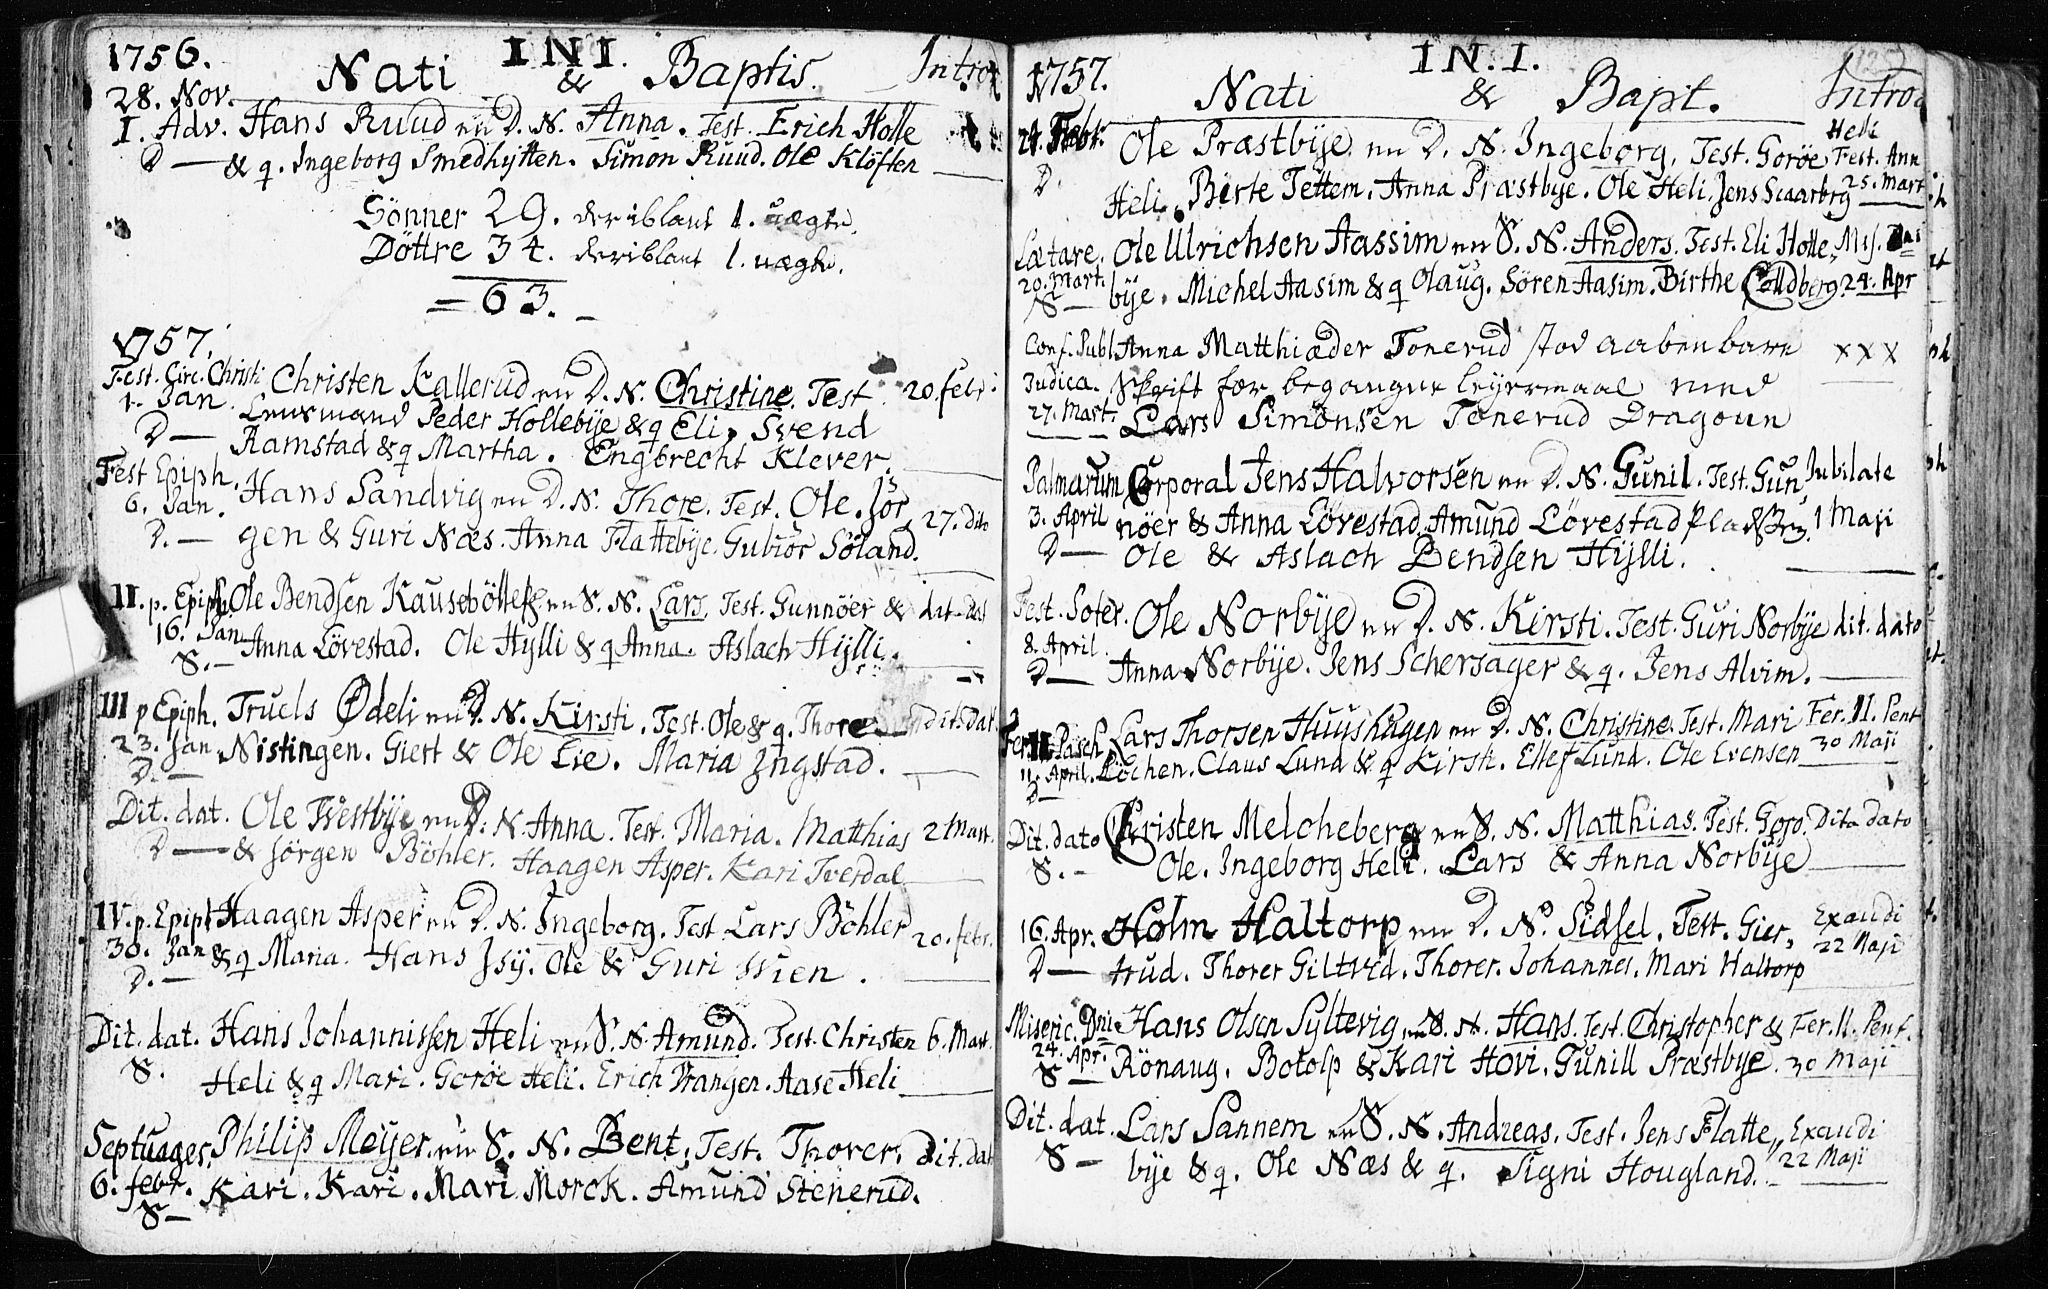 1756. I N I.
Nati & Baptis. Introd
28. Nov. I. Adv. Hans Ruud en D. N. Anna. Test. Erich Holle
D — & q. Ingeborg Smedhytten. Simon Ruud. Ole Klöften
Sönner 29. deriblant 1. uægte.
Döttre 34. deriblant 1. uægte.
= 63. –
1757.
Fest. Circ. Christi Christen Kallerud en D. N. Christine. Test. 20. febr.
1. Jan. Lensmand Peder Hollebÿe & q Eli. Svend
D — Ramstad & q Martha. Engbrecht Klever.
Fest Epiph. Hans Sandvig en D. N. Thore. Test. Ole. Jör
6. Jan. D. — gen & Guri Næs. Anna Flattebÿe. Gubiör Söland. 27. dito
II. p. Epiph Ole Bendsen Kauseböllesz en S. N. Lars. Test. Gunnöer & dit. dat
16. Jan S. — Anna Lövestad. Ole Hylli & q Anna. Aslach Hÿlli.
III p Epiph. Truels Ödeli en D. N. Kirsti. Test. Ole & q. Thore dit. dat.
23. Jan D. — Nistingen. Giert & Ole Lie. Maria Jngstad.
Dit. dat. Ole Westbÿe en D. N. Anna. Test. Maria. Matthias 2 Mart.
D — & Jörgen Böhler. Haagen Asper. Kari Tverdal
IV. p. Epiph Haagen Asper en D. N. Ingeborg. Test Lars Böhler 20. febr.
30. Jan D. — & q Maria. Hans Jsÿ. Ole & Guri Wien.
Dit. dat. Hans Johannissen Heli en S. N. Amund. Test. Christen 6. Mart.
S. Heli & q Mari. Goröe Heli. Erich Vrangen. Aase Heli
Septuages. Philip Meÿer en S. N. Bent. Test. Thorer. dit. dat
6. febr. S — Kari. Kari. Mari Morck. Amund Stenerud.
1757. I N. I.
Nati & Bapt. Introd
24. Febr. Ole Præstbÿe en D. N. Ingeborg. Test. Goröe Heli Fest. Ann
D Heli. Berte Tettem. Anna Præstbye. Ole Heli. Jens Scaarbrg 25. Mart
Lætare. Ole Ulrichsen Aassim en S. N. Anders. Test. Eli Holle, Mis.
20. Mart. S — bÿe. Michel Aasim & q Olaug. Sören Aasim. Birthe Colldberg. 24. Apr
Conf. Publ. Anna Matthiæder Tonerud stod aabenbare x x x
Judica. Skrift for begangne leÿermaal med
27. Mart. Lars Simonsen Tonerud Dragoun
Palmarum Corporal Jens Halvorsen en D. N. Gunil. Test. Gun Jubilate
3. April nöer & Anna Lövestad. Amund Lövestad 1 Maji
D — Ole & Aslach Bendsen Hÿlli.
Fest. Soter. Ole Norbÿe en D. N. Kirsti. Test. Guri Norbÿe dit. dato
8. April. D — Anna Norbÿe. Jens Schersager & q. Jens Alvim.
Fer. II. Pasch. Lars Thorsen Huushagen en D. N. Christine. Test. Mari Fer. II. Pent
11. April. D — Löchen. Claus Lund & q Kirsti. Ellef Lund. Ole Evensen 30 Maji
Dit. dato Christen Melcheberg en S. N. Matthias. Test. Goro. Dito dato
S. – Ole. Ingeborg Heli. Lars & Anna Norbÿe
16. Apr. Holm Haltorp en D. N. Sidsel. Test. Gier, Exaudi
D — trud. Thorer Giltvid. Thorer. Johannes. Mari Haltorp 22 Maji
Miseric. Dni Hans Olsen Syltevig en S. N. Hans. Test. Christopher & Fer. II. Pent.
24. Apr. S — Rönaug. Botolp & Kari Hovi. Gunill Præstbÿe. 30 Maji
Dit. dat. Lars Sannem en S. N. Andreas. Test. Jens Flatte, Exaudi
S — bÿe & q. Ole Næs & q. Signi Hougland. 22 Maji